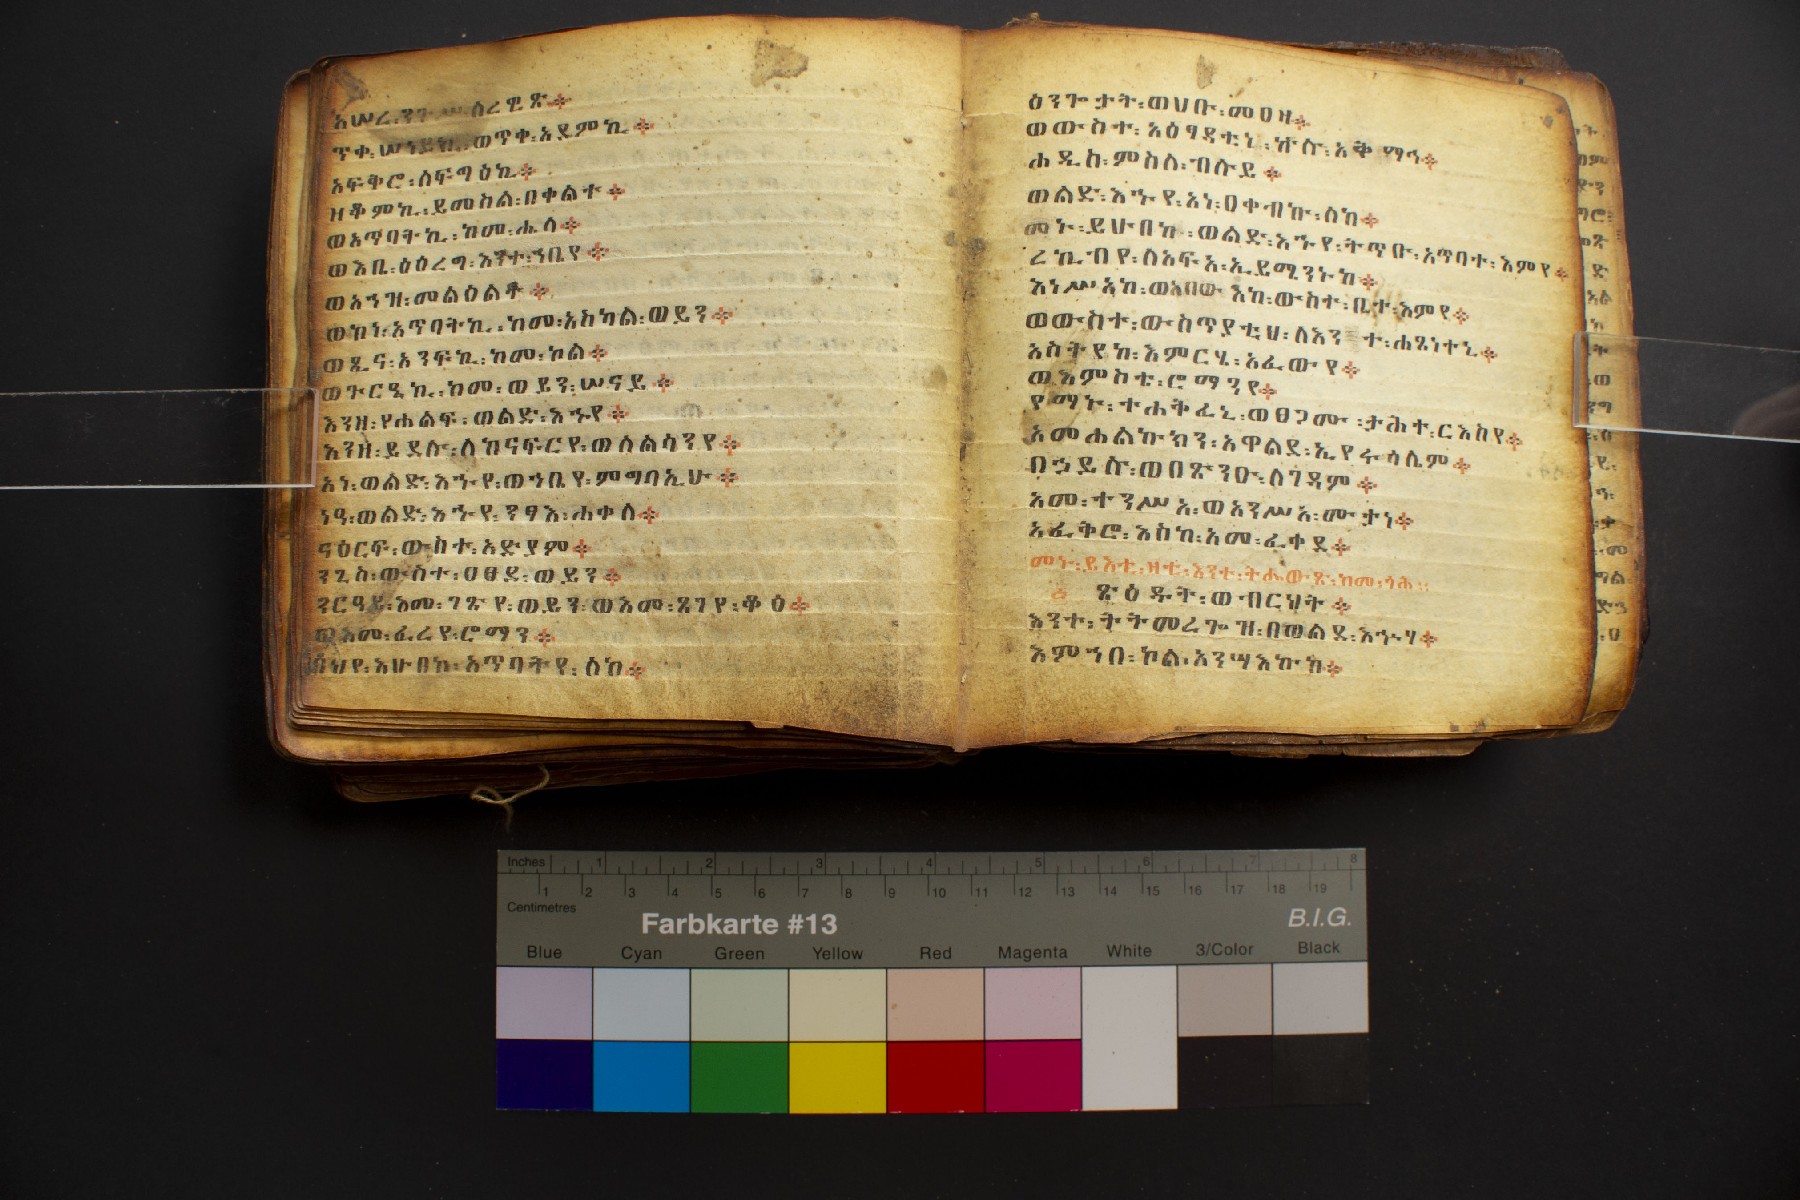 ጥቀ፡ ወጥቀ፡አደምኪ፨
አፍቅሮ፡ሰፍግዕኪ፨
ዘቆምኪ፡ይመስል፡በቀልተ፨
ወአጥባትኪ፡ከመ፡ሐሳ፨
ወእቤ፡ዕዐረግ፡እንተ፡ኀቤየ፨
ወአኀዝ፡መልዕልቶ፨
ወከነ፡አጥባትኪ፡ከመ፡አስካል፡ወይን፨
ወጼና፡አንፍኪ፡ከመ፡ኮል፨
ወጕርዔኪ፡ከመ፡ወይን፡ሠናይ፨
እንዘ፡የሐልፍ፡ወልድ፡እኁየ፨
እንዘ፡ይደሉ፡ለከናፍርየ፡ወሰልሳንየ፨
አነ፡ወልድ፡እኁየ፡ወኀቤየ፡ምግባኢሁ፨
ነዓ፡ወልድ፡እኁየ፡ንፃእ፡ሐቀለ፨
ናዕርፍ፡ውስተ፡አድያም፨
ንጊስ፡ውስተ፡ዐፀደ፡ወይን፨
ንርዓይ፡እመ፡ገጽየ፡ወይን፡ወእመ፡ጸገየ፡ቆዕ፨
ወእመ፡ፈረየ፡ሮማን፨
በህየ፡እሁበከ፡አጥባትየ፡ለከ፨
ዕንጐታት፡ወሀቡ፡መዐዛ፨
ወውስተ፡አዕፃዳቲነ፡ኵሉ፡አቅማኅ፨
ሐዲስ፡ምስለ፡ብሉይ፨
ወልድ፡እኁየ፡አነ፡ዐቀብኩ፡ለከ፨
መኑ፡ይሁበከ፡ወልድ፡እኁየ፡ትጥቡ፡አጥባተ፡እምየ፨
ረኪብየ፡ስአፍአ፡ኢይሜንኑከ፨
እነሥአከ፡ወአበውእከ፡ውስተ፡ቤተ፡እምየ፨
ወውስተ፡ውስጥያቲሀ፡ለእንተ፡ሐፀነተኒ፨
አስትየከ፡እምርሂ፡አፈውየ፨
ወእምስቴ፡ሮማንየ፨
የማኑ፡ተሐቅፈኒ፡ወፀጋሙ፡ታሕተ፡ርእስየ፨
አመሐልኩክን፡አዋልደ፡ኢየሩሳሌም፨
በኃይሉ፡ወበጽንዑ፡ለገዳም፨
እመ፡ተንሥአ፡ወአንሥአ፡ሙታነ፨
አፈቅሮ፡እስከ፡አመ፡ፈቀደ፨
መኑ፡ይእቲ፡ዛቲ፡እንተ፡ትሔውጽ፡ከመ፡ጎሕ፡፡
ጽዕዱት፡ወብርህት፨
እንተ፡ትትመረጐዝ፡በወልደ፡እኁሃ፨
እምኀበ፡ኮል፡አንሣእኩከ፨
Inches 1 2 3 4 5 6 7 8
1 2 3 4 5 6 7 8 9 10 11 12 13 14 15 16 17 18 19
Centimetres
Farbkarte #13
B.I.G.
Blue Cyan Green Yellow Red Magenta White 3/Color Black